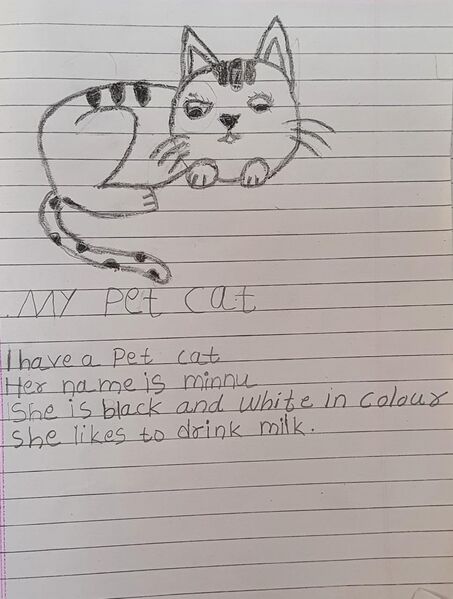 MY Pet cat
I have a Pet cat
Her name is minnu
She is black and White in colour
she likes to drink milk.